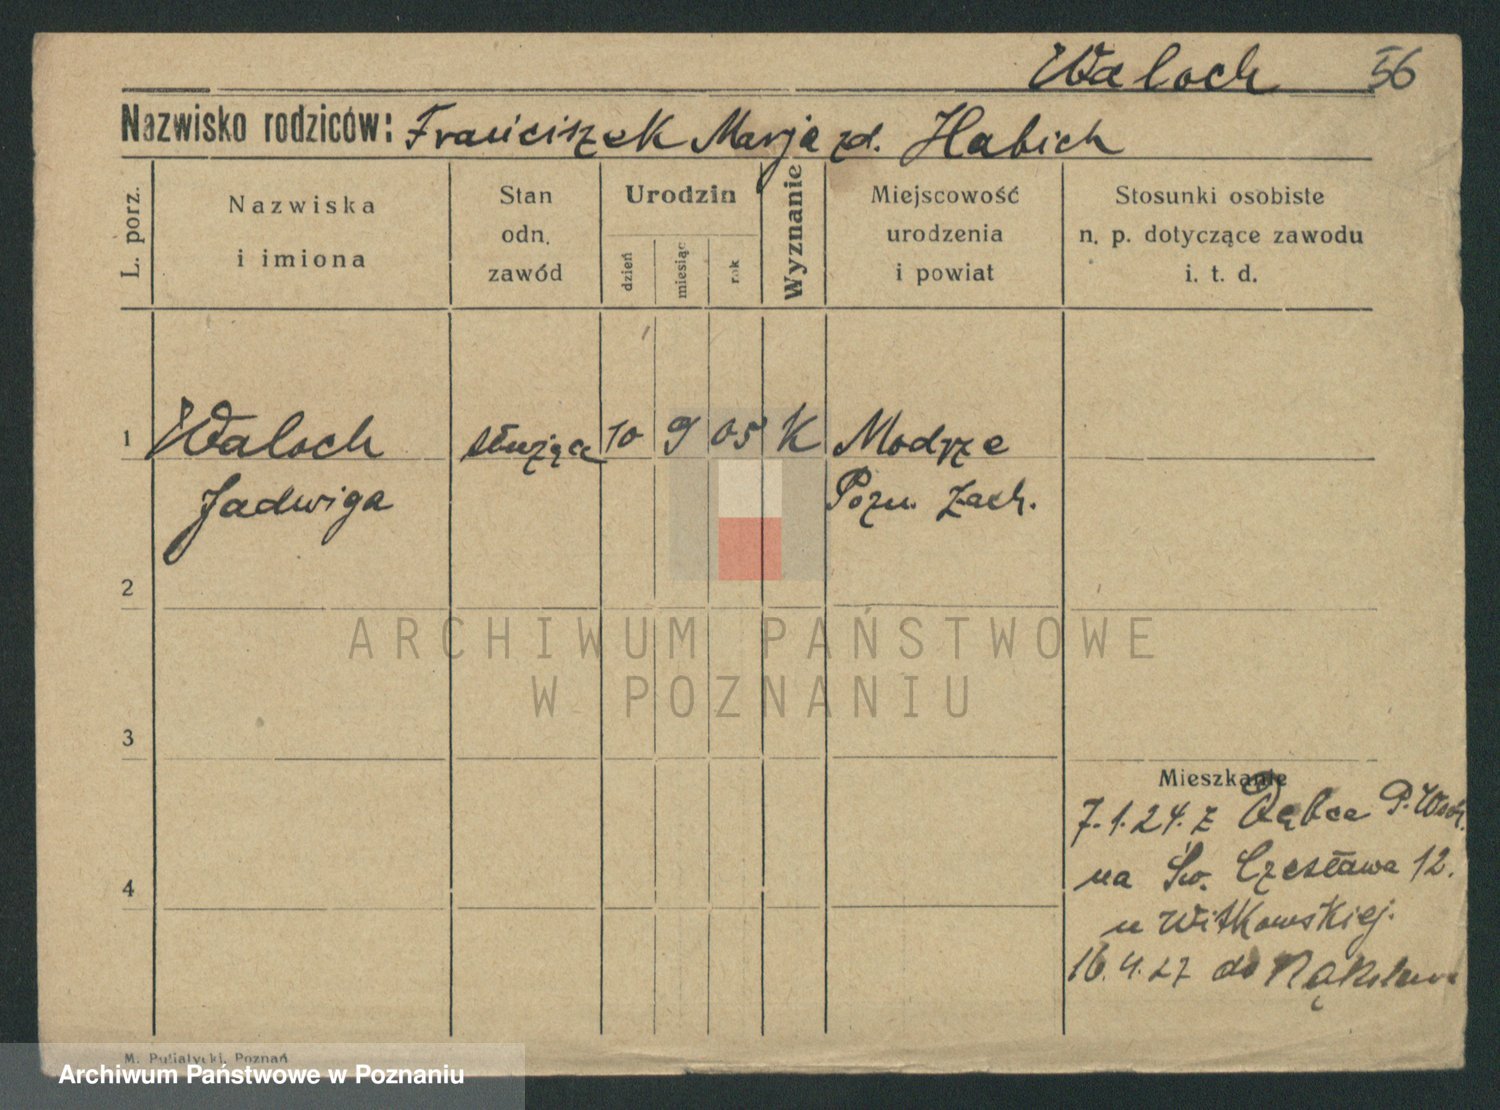 Waloch 56
Nazwisko rodziców: Franciszek Marja zd. Habich
L. porz.
Nazwiska
i imiona
Stan
odn.
zawód
Urodzin
dzień
miesiąc
rok
Wyznanie
Miejscowość
urodzenia
i powiat
Stosunki osobiste
n. p. dotyczące zawodu
i. t. d.
1 Waloch służąca 10 9 05 K Modrze
Jadwiga Pozn. Zach.
2
ARCHIWUM PAŃSTWOWE
W POZNANIU
3
Mieszkanie
7.1.24. z Dębca P. Wsch.
4
na Św. Czesława 12.
u Witkowskiej.
16.4.27 do
M. Putiatycki, Poznań
Archiwum Państwowe w Poznaniu